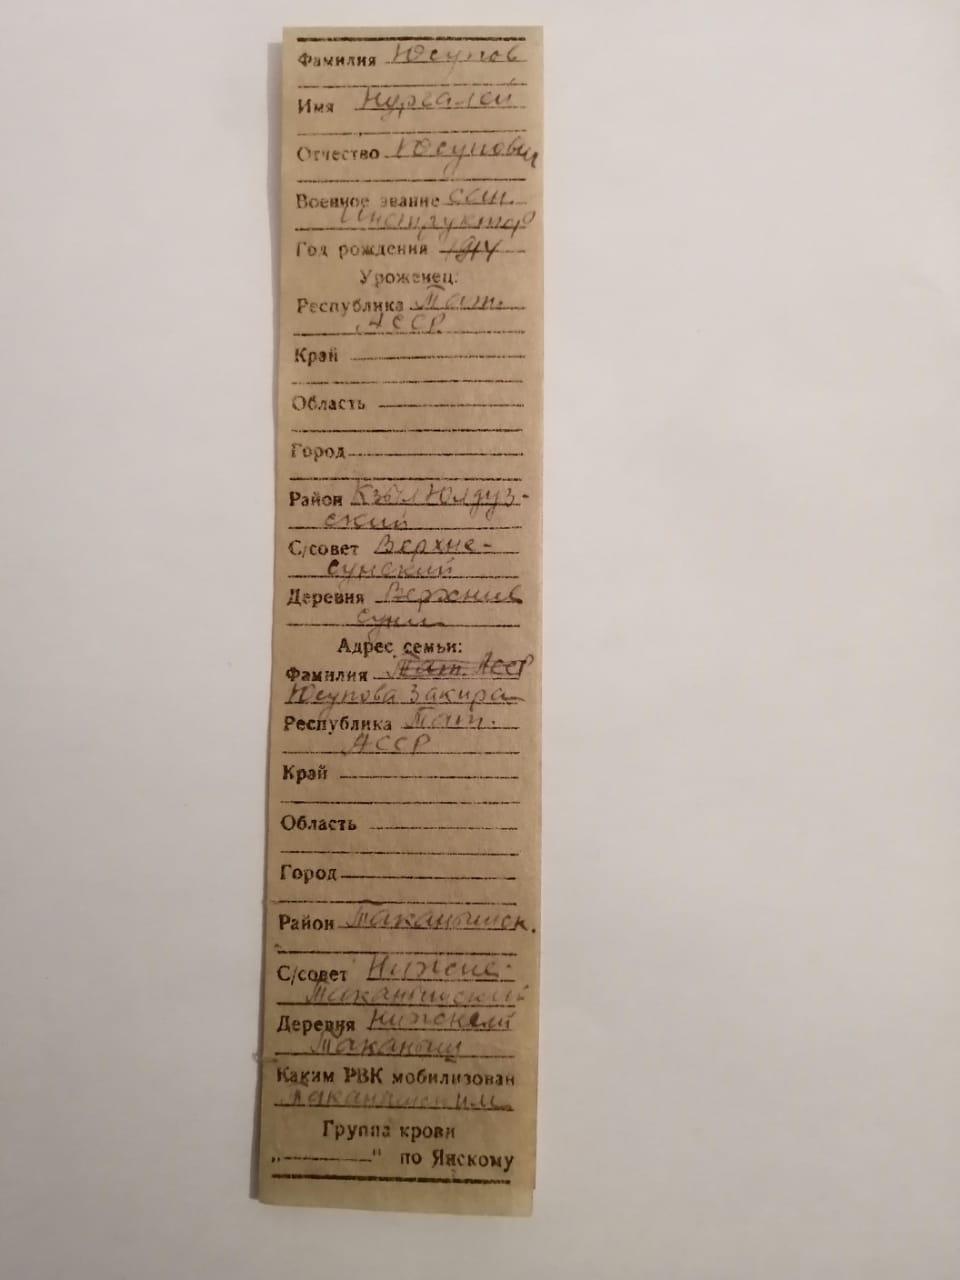 Фамилия Юсупов
Имя Нургалей
Отчество Юсупович
Военное звание сан.
Инструктор
Год рождения 1914
Уроженец:
Республика Тат.
АССР
Край
Область
Город
Район Кзыл Юлдуз-
ский
С/совет Верхне-
сунский
Деревня Верхние
Суни
Адрес семьи:
Фамилия Тат. АССР
Юсупова Закира
Республика Тат.
АССР
Край
Область
Город
Район Таканышск.
С/совет Нижне-
Таканышский
Деревня Нижний
Таканыш
Каким РВК мобилизован
Таканышским
Группа крови
„ " по Янскому